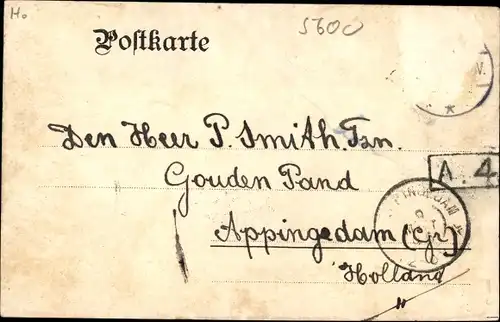 H.
5600
Postkarte
Den Heer P. Smith. Fzn.
Gouden Pand
Appingedam (Gr)
Holland
A. 4